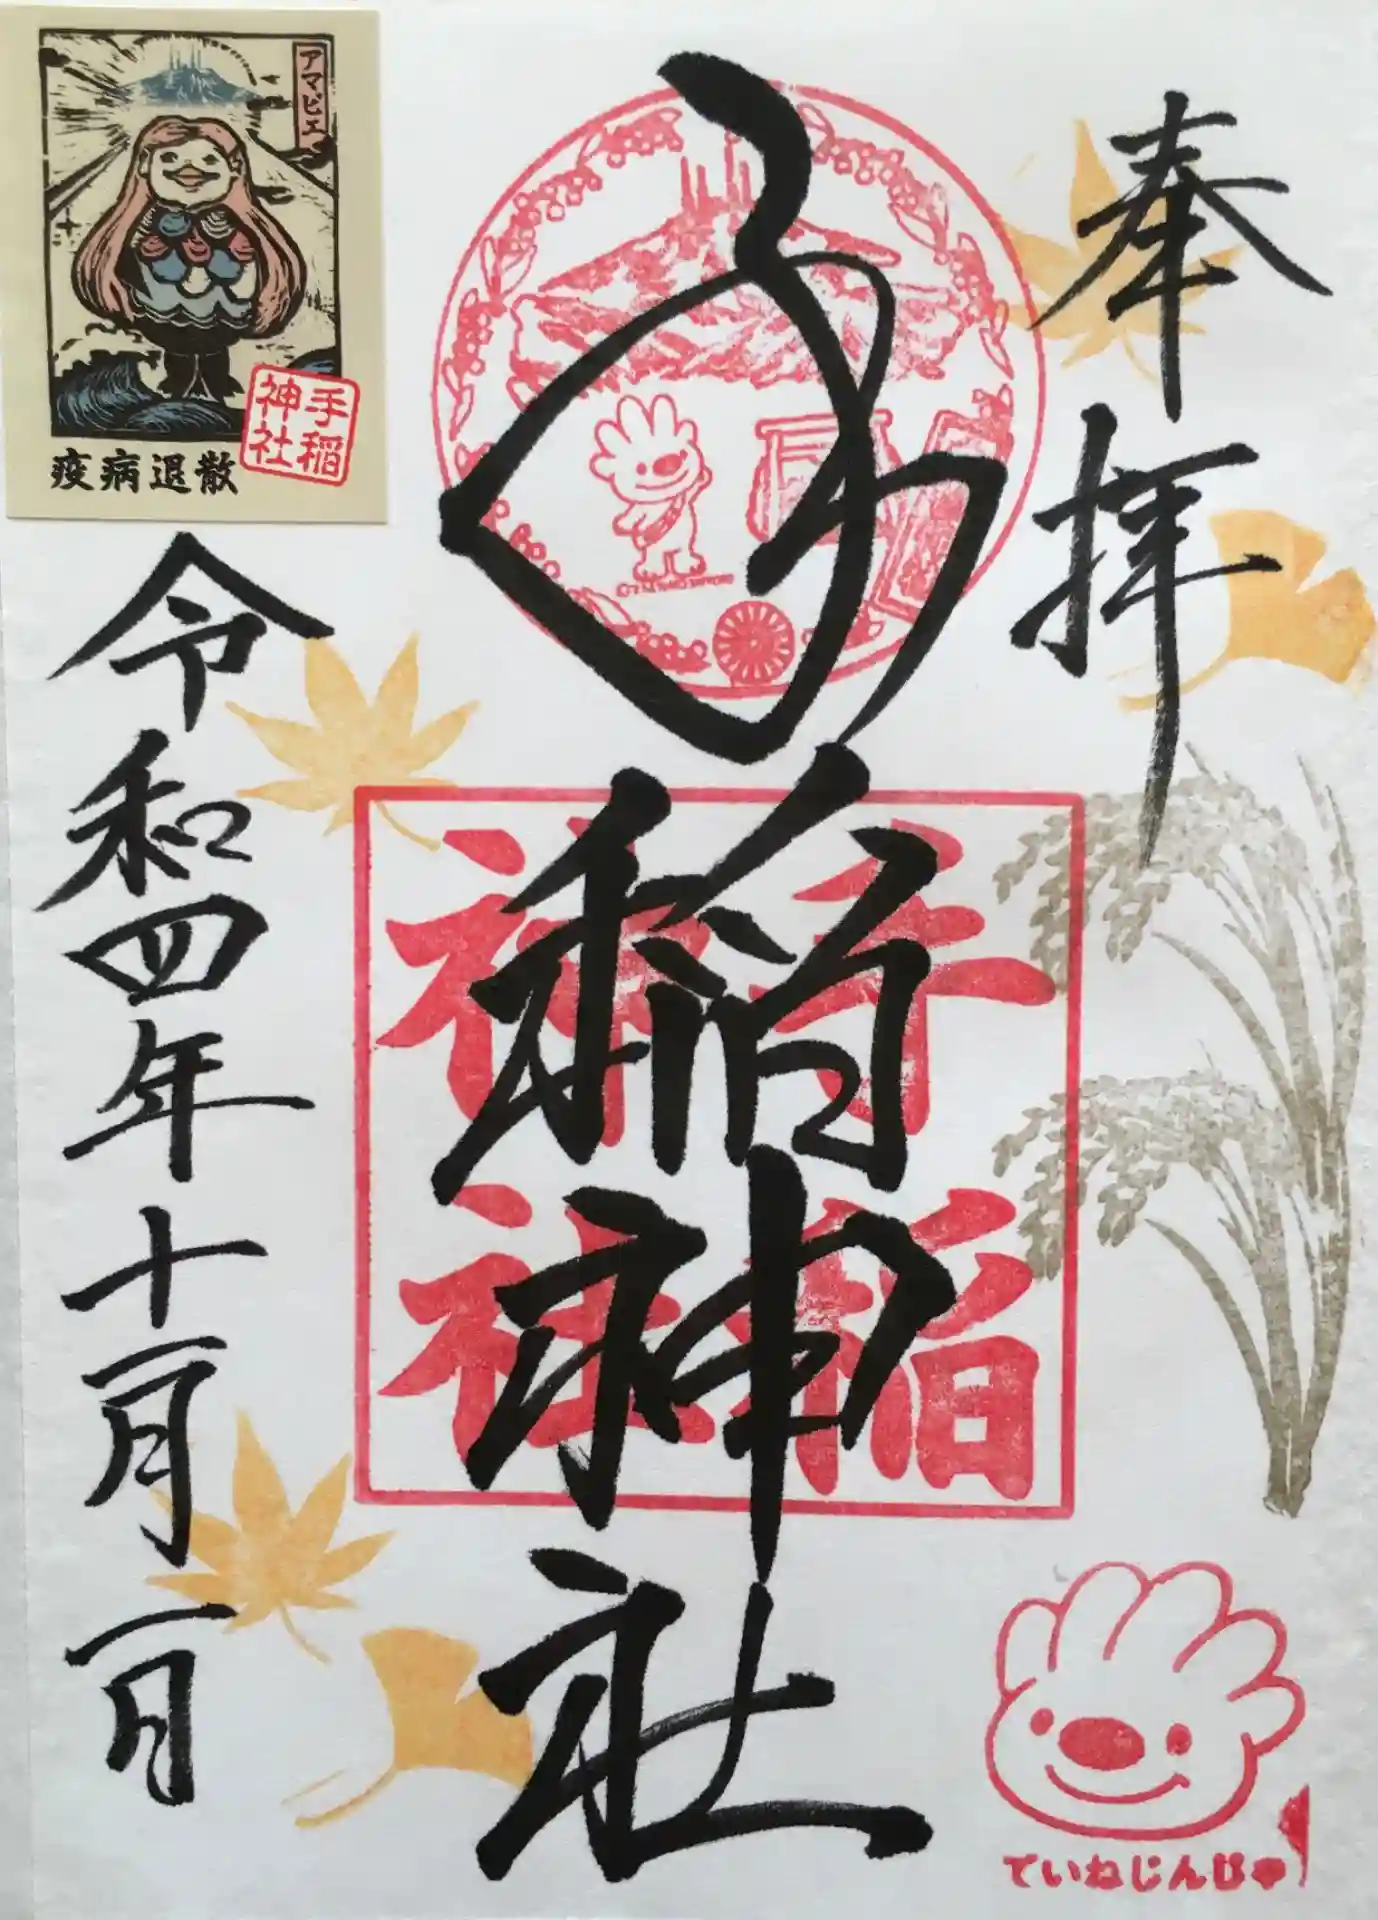 奉拝
手稲神社
令和四年十一月一日
アマビエ
手稲
神社
疫病退散
手稲
神社
ていねじんじゃ